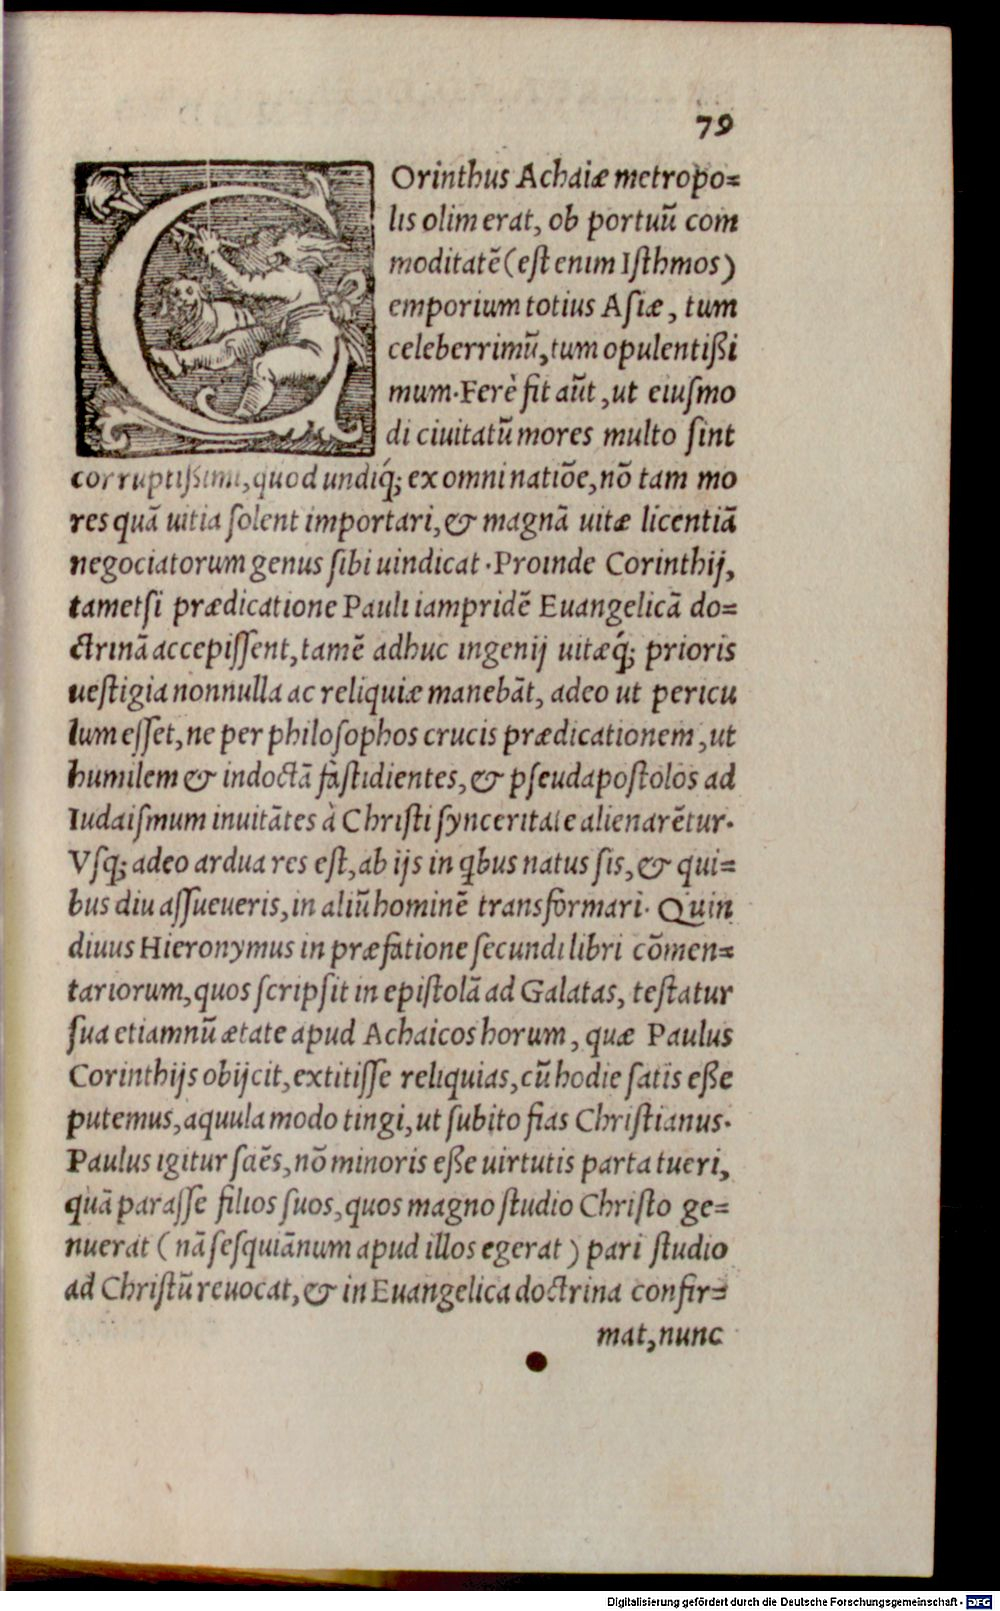 79
COrinthus Achaiæ metropo=
lis olim erat, ob portuũ com
moditatẽ (est enim Isthmos)
emporium totius Asiæ, tum
celeberrimũ, tum opulentißi
mum. Ferè fit aũt, ut eiusmo
di ciuitatũ mores multo sint
corruptißimi, quod undiq́; ex omni natiõe, nõ tam mo
res quã uitia solent importari, & magnã uitæ licentiã
negociatorum genus sibi uindicat. Proinde Corinthij,
tametsi prædicatione Pauli iampridẽ Euangelicã do=
ctrinã accepissent, tamẽ adhuc ingenij uitæq́; prioris
uestigia nonnulla ac reliquiæ manebãt, adeo ut pericu
lum esset, ne per philosophos crucis prædicationem, ut
humilem & indoctã fastidientes, & pseudapostolos ad
Iudaismum inuitãtes à Christi synceritate alienarẽtur.
Vsq; adeo ardua res est, ab ijs in qbus natus sis, & qui=
bus diu assueueris, in aliũ hominẽ transformari. Quin
diuus Hieronymus in præfatione secundi libri cõmen=
tariorum, quos scripsit in epistolã ad Galatas, testatur
sua etiamnũ ætate apud Achaicos horum, quæ Paulus
Corinthijs obijcit, extitisse reliquias, cũ hodie satis eße
putemus, aquula modo tingi, ut subito fias Christianus.
Paulus igitur saẽs, nõ minoris eße uirtutis parta tueri,
quã parasse filios suos, quos magno studio Christo ge=
nuerat (nã sesquiãnum apud illos egerat) pari studio
ad Christũ reuocat, & in Euangelica doctrina confir=
mat, nunc
Digitalisierung gefördert durch die Deutsche Forschungsgemeinschaft - DFG